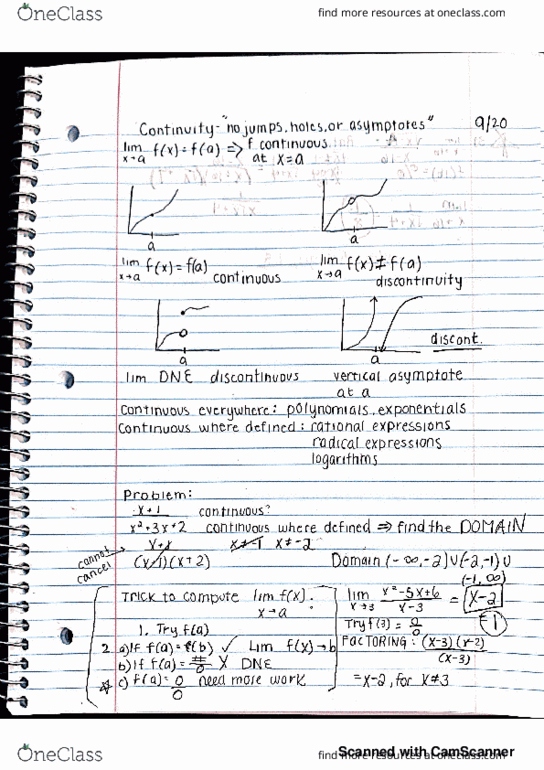 OneClass
find more resources at oneclass.com
Continuity - "no jumps, holes, or asymptotes" 9/20
lim f(x) = f(a) => f continuous
x→a at x=a
a a
lim f(x) = f(a) continuous
x→a
lim f(x) ≠ f(a)
x→a
discontinuity
discont.
a a
lim DNE discontinuous
vertical asymptote
at a
Continuous everywhere: polynomials, exponentials
Continuous where defined: rational expressions
radical expressions
logarithms
Problem:
x+1 continuous?
x²+3x+2 continuous where defined => find the DOMAIN
cannot
cancel
x+1 x≠-1 x≠-2
(x+1)(x+2)
Domain (-∞,-2)∪(-2,-1)∪
(-1,∞)
TRICK to compute lim f(x).
x→a
1. Try f(a)
2. a) If f(a) = f(b) ✓ Lim f(x)→b
b) If f(a) = #/0 X DNE
c) f(a) = 0/0 need more work
lim x²-5x+6 = x-2
x→3 x-3
=1
Try f(3) = 0/0
FACTORING: (x-3)(x-2)
(x-3)
=x-2, for x≠3
OneClass
find more resources at oneclass.com
Scanned with CamScanner